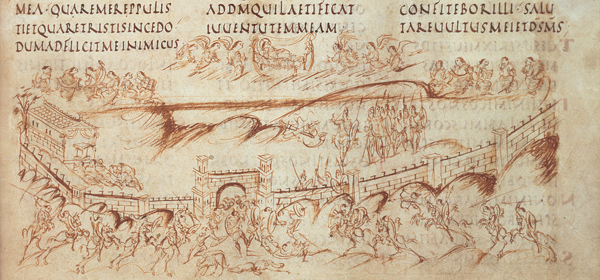 MEA·QUAREMEREPPULIS
TIETQUARETRISTISINCEDO
DUMADFLICITMEINIMICUS
ADDMQUILAETIFICAT
IUUENTUTEMMEAM
CONFITEBORILLI·SALU
TAREUULTUSMEIETDSMS